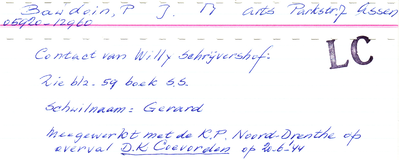 Bawdoin, P J. M arts Parkstr, Assen
05420-12960
Contact van Willy Schrijvershof.
LC
Zie blz. 59 boek S.S.
Schuilnaam: Gerard
Meegewerkt met de K.P. Noord-Drenthe op
overval D.K Coevorden op 20-6-44